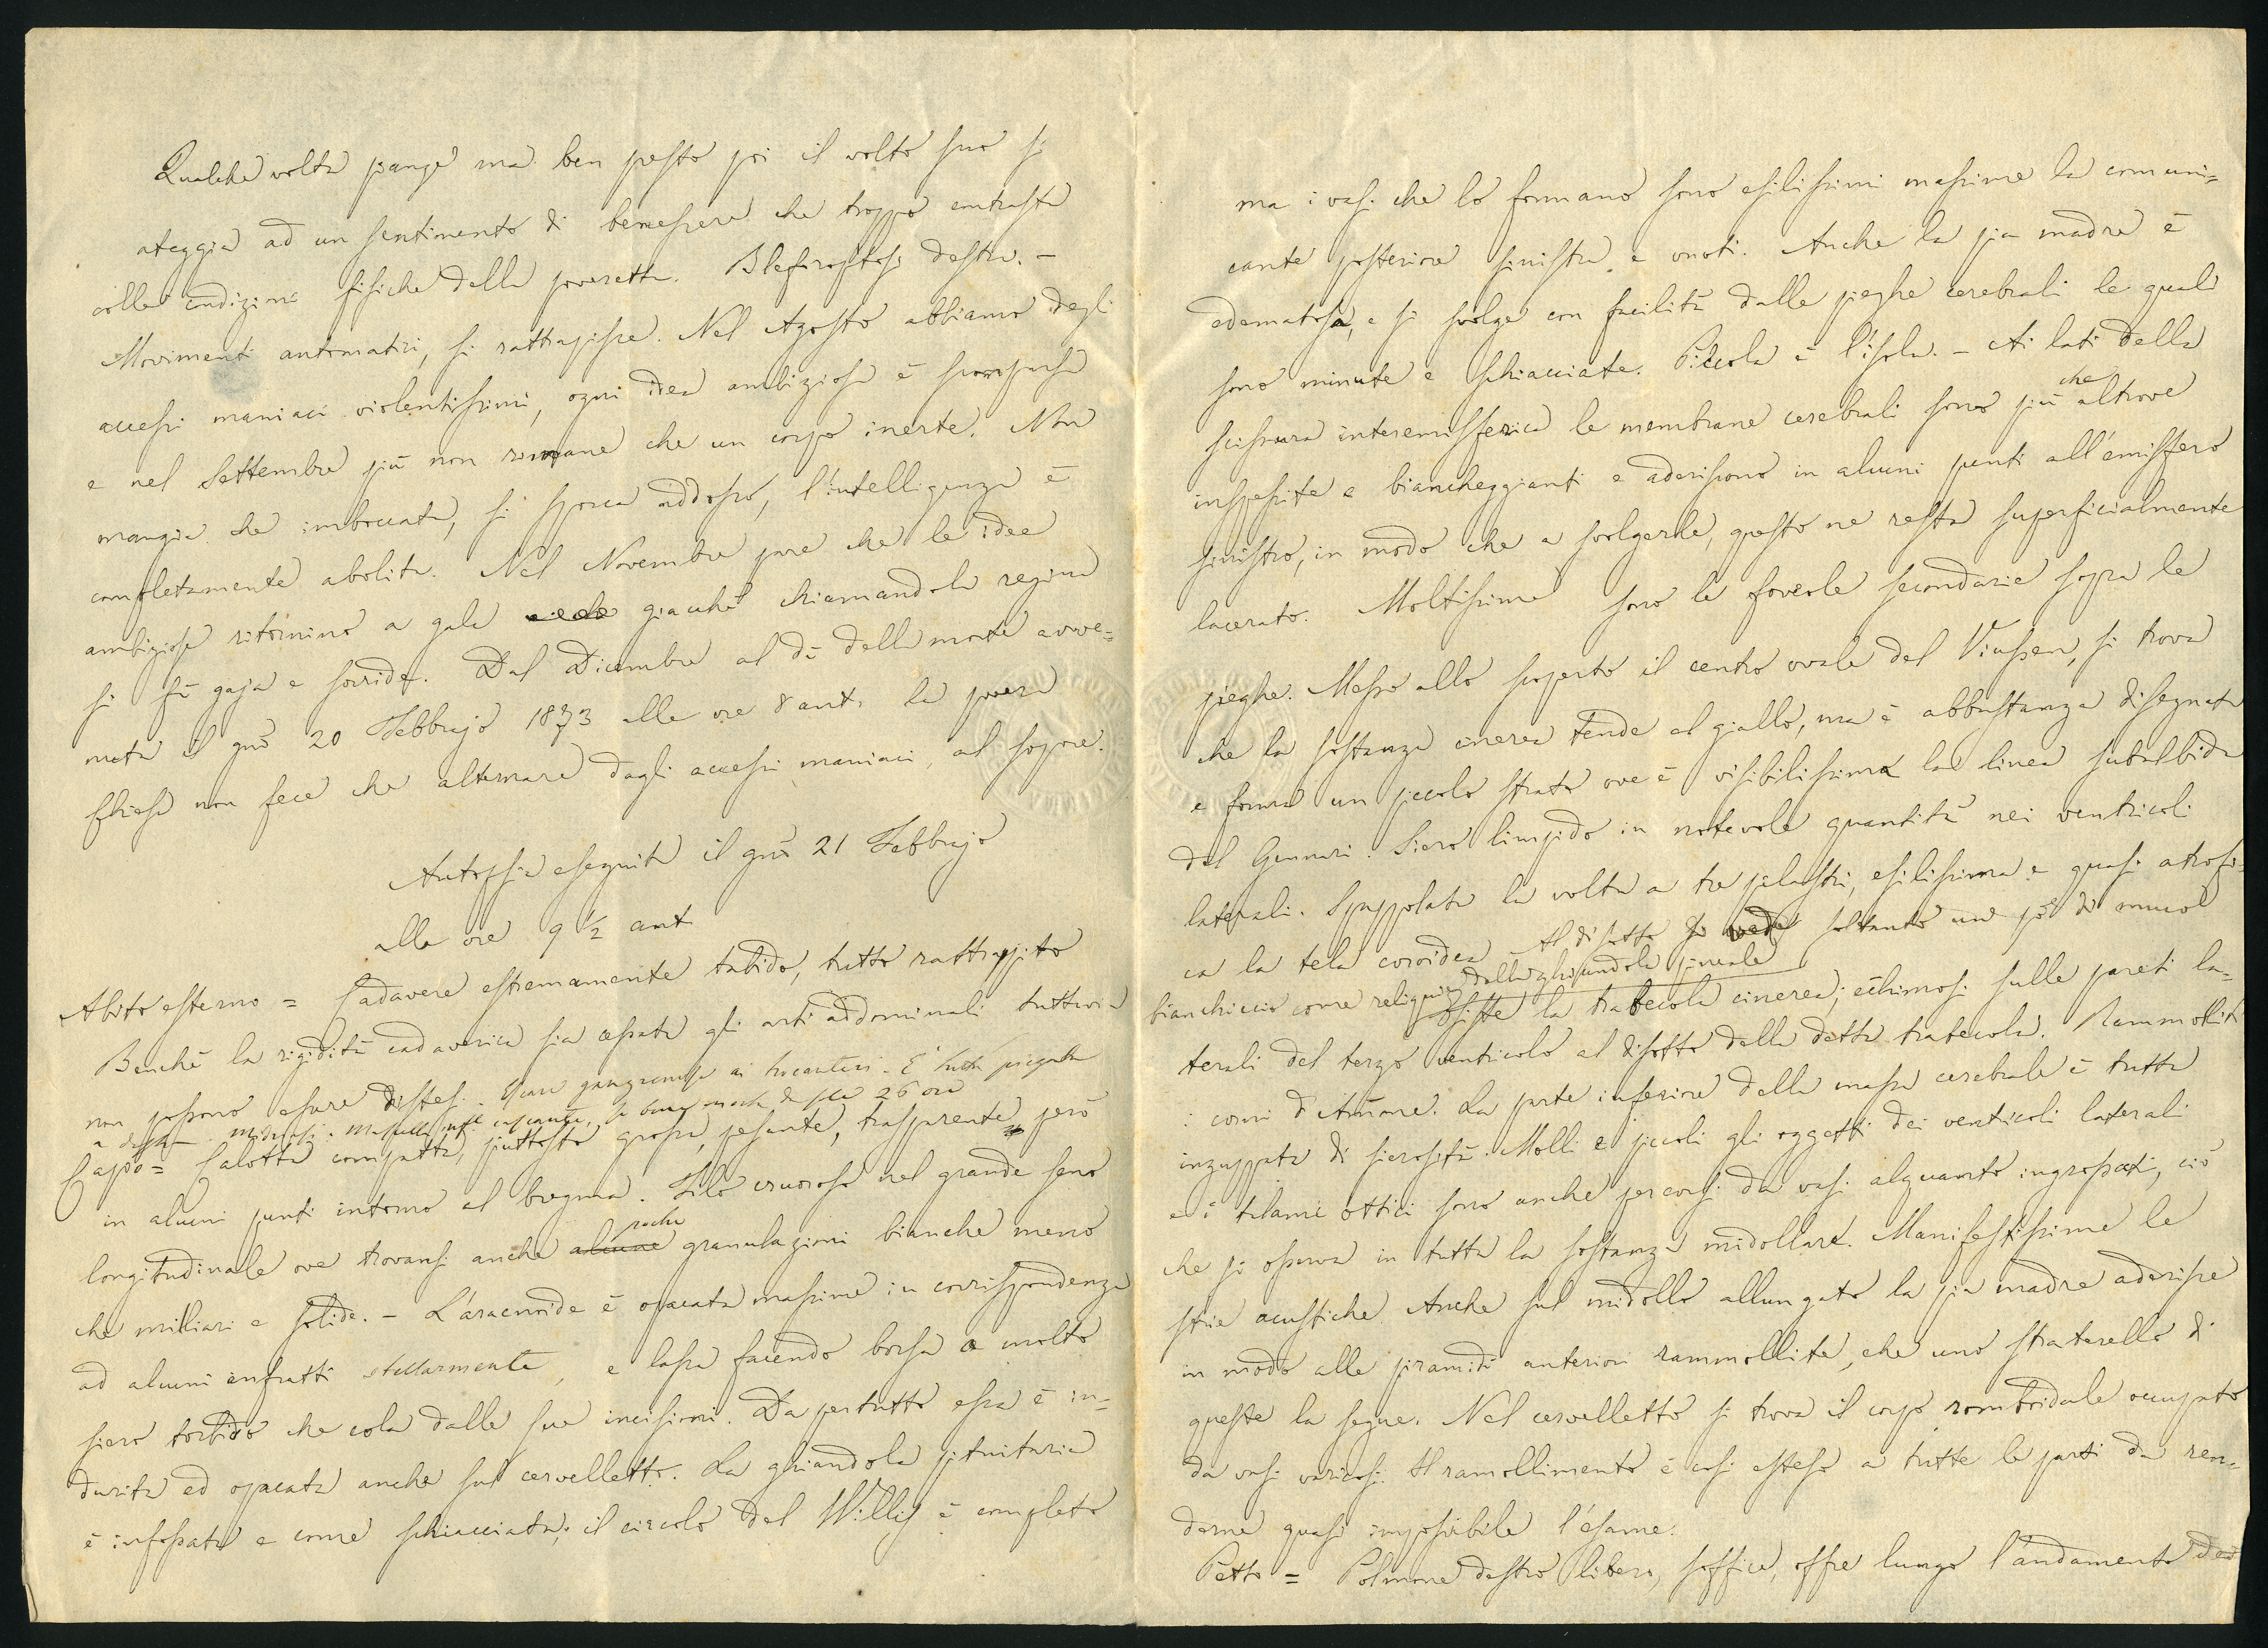 Qualche volta piange ma ben presto poi il volto suo si
ateggia ad un sentimento di benessere che troppo contrasta
colle condizioni fisiche della poveretta. Blefaroptosi destra. -
Movimenti automatici, si rattrapisce. Nel Agosto abbiamo degli
accessi maniaci violentissimi, ogni idea ambiziosa è scomparsa
e nel Settembre più non rimane che un corpo inerte. Non
mangia che imboccata, si sporca addosso, l'intelligenza è
completamente abolita. Nel Novembre pare che le idee
ambiziose ritornino a gala giacchè chiamandola regina
si fà gaja e sorride. Dal Dicembre al dì della morte avve=
nuta il gno 20 Febbrajo 1873 alle ore 8 ant. la povera
non fece che alternare dagli accessi maniaci, al sopore.
Autopsia eseguita il gno 21 Febbrajo
alle ore 9 ½ ant
Abito esterno = Cadavere estremamente tabido, tutto rattrappito
Benchè la rigidità cadaverica sia cessata gli arti addominali tuttavia
non possono essere distesi. Escare gangrenose ai trocanteri. È tutta piegata
a destra. Midriasi. morta da sole 26 ore
Capo = Calotta compatta, piuttosto grossa, pesante, trasparente però
in alcuni punti intorno al bregma. Tilo cruoroso nel grande seno
longitudinale ove trovansi anche alcune poche granulazioni bianche meno
che milliari e solide. - L'aracnoide è opacata massime in corrispondenza
ad alcuni anfratti stellarmente, e lassa facendo borsa a molto
siero torbido che cola dalle sue incisioni. Da pertutto essa è in=
durita ed opacata anche sul cervelletto. La ghiandola pituitaria
è infossata e come schiacciata; il circolo del Willis è completo
ma i vasi che lo formano sono esilissimi massime la comuni=
cante posteriore sinistra e vuoti. Anche la pia madre è
edematosa, e si svolge con facilità dalle pieghe cerebrali le quali
sono minute e schiacciate. Piccola è l'isola. - Ai lati della
scissura interemisferica le membrane cerebrali sono più che altrove
inspessite e biancheggianti e aderiscono in alcuni punti all'emisfero
sinistro, in modo che a svolgerle, questo ne resta superficialmente
lacerato. Moltissime sono le foveole secondarie sopra le
pieghe. Messo allo scoperto il centro ovale del Viussen, si trova
che la sostanza cinerea tende al giallo, ma è abbastanza disegnata
e forma un piccolo strato ove è visibilissima la linea subalbida
del Gennari. Siero limpido in notevole quantità nei ventricoli
laterali. Spappolata la volta a tre pilastri, esilissima e quasi atrofi=
ca la tela coroidea. Al disotto si vede soltanto un pò di muco
bianchiccio come reliquie della ghiandola pineale
Esiste la trabecola cinerea; echimosi sulle pareti la=
terali del terzo ventricolo al disotto della detta trabecola. Rammolliti
i corni d'Ammone. La parte inferiore della massa cerebrale è tutta
inzuppata di sierosità. Molli e piccoli gli oggetti dei ventricoli laterali
e i talami ottici sono anche percorsi da vasi alquanto ingrossati, ciò
che si osserva in tutta la sostanza midollare. Manifestissime le
strie acustiche. Anche sul midollo allungato la pia madre aderisce
in modo alle piramidi anteriori rammollite, che uno straterello di
queste la segue. Nel cervelletto si trova il corpo romboidale occupato
da vasi varicosi. Il ramollimento è così esteso a tutte le parti da ren=
derne quasi impossibile l'esame.
Petto = Polmone destro libero, soffice, offre lungo l'andamento dei